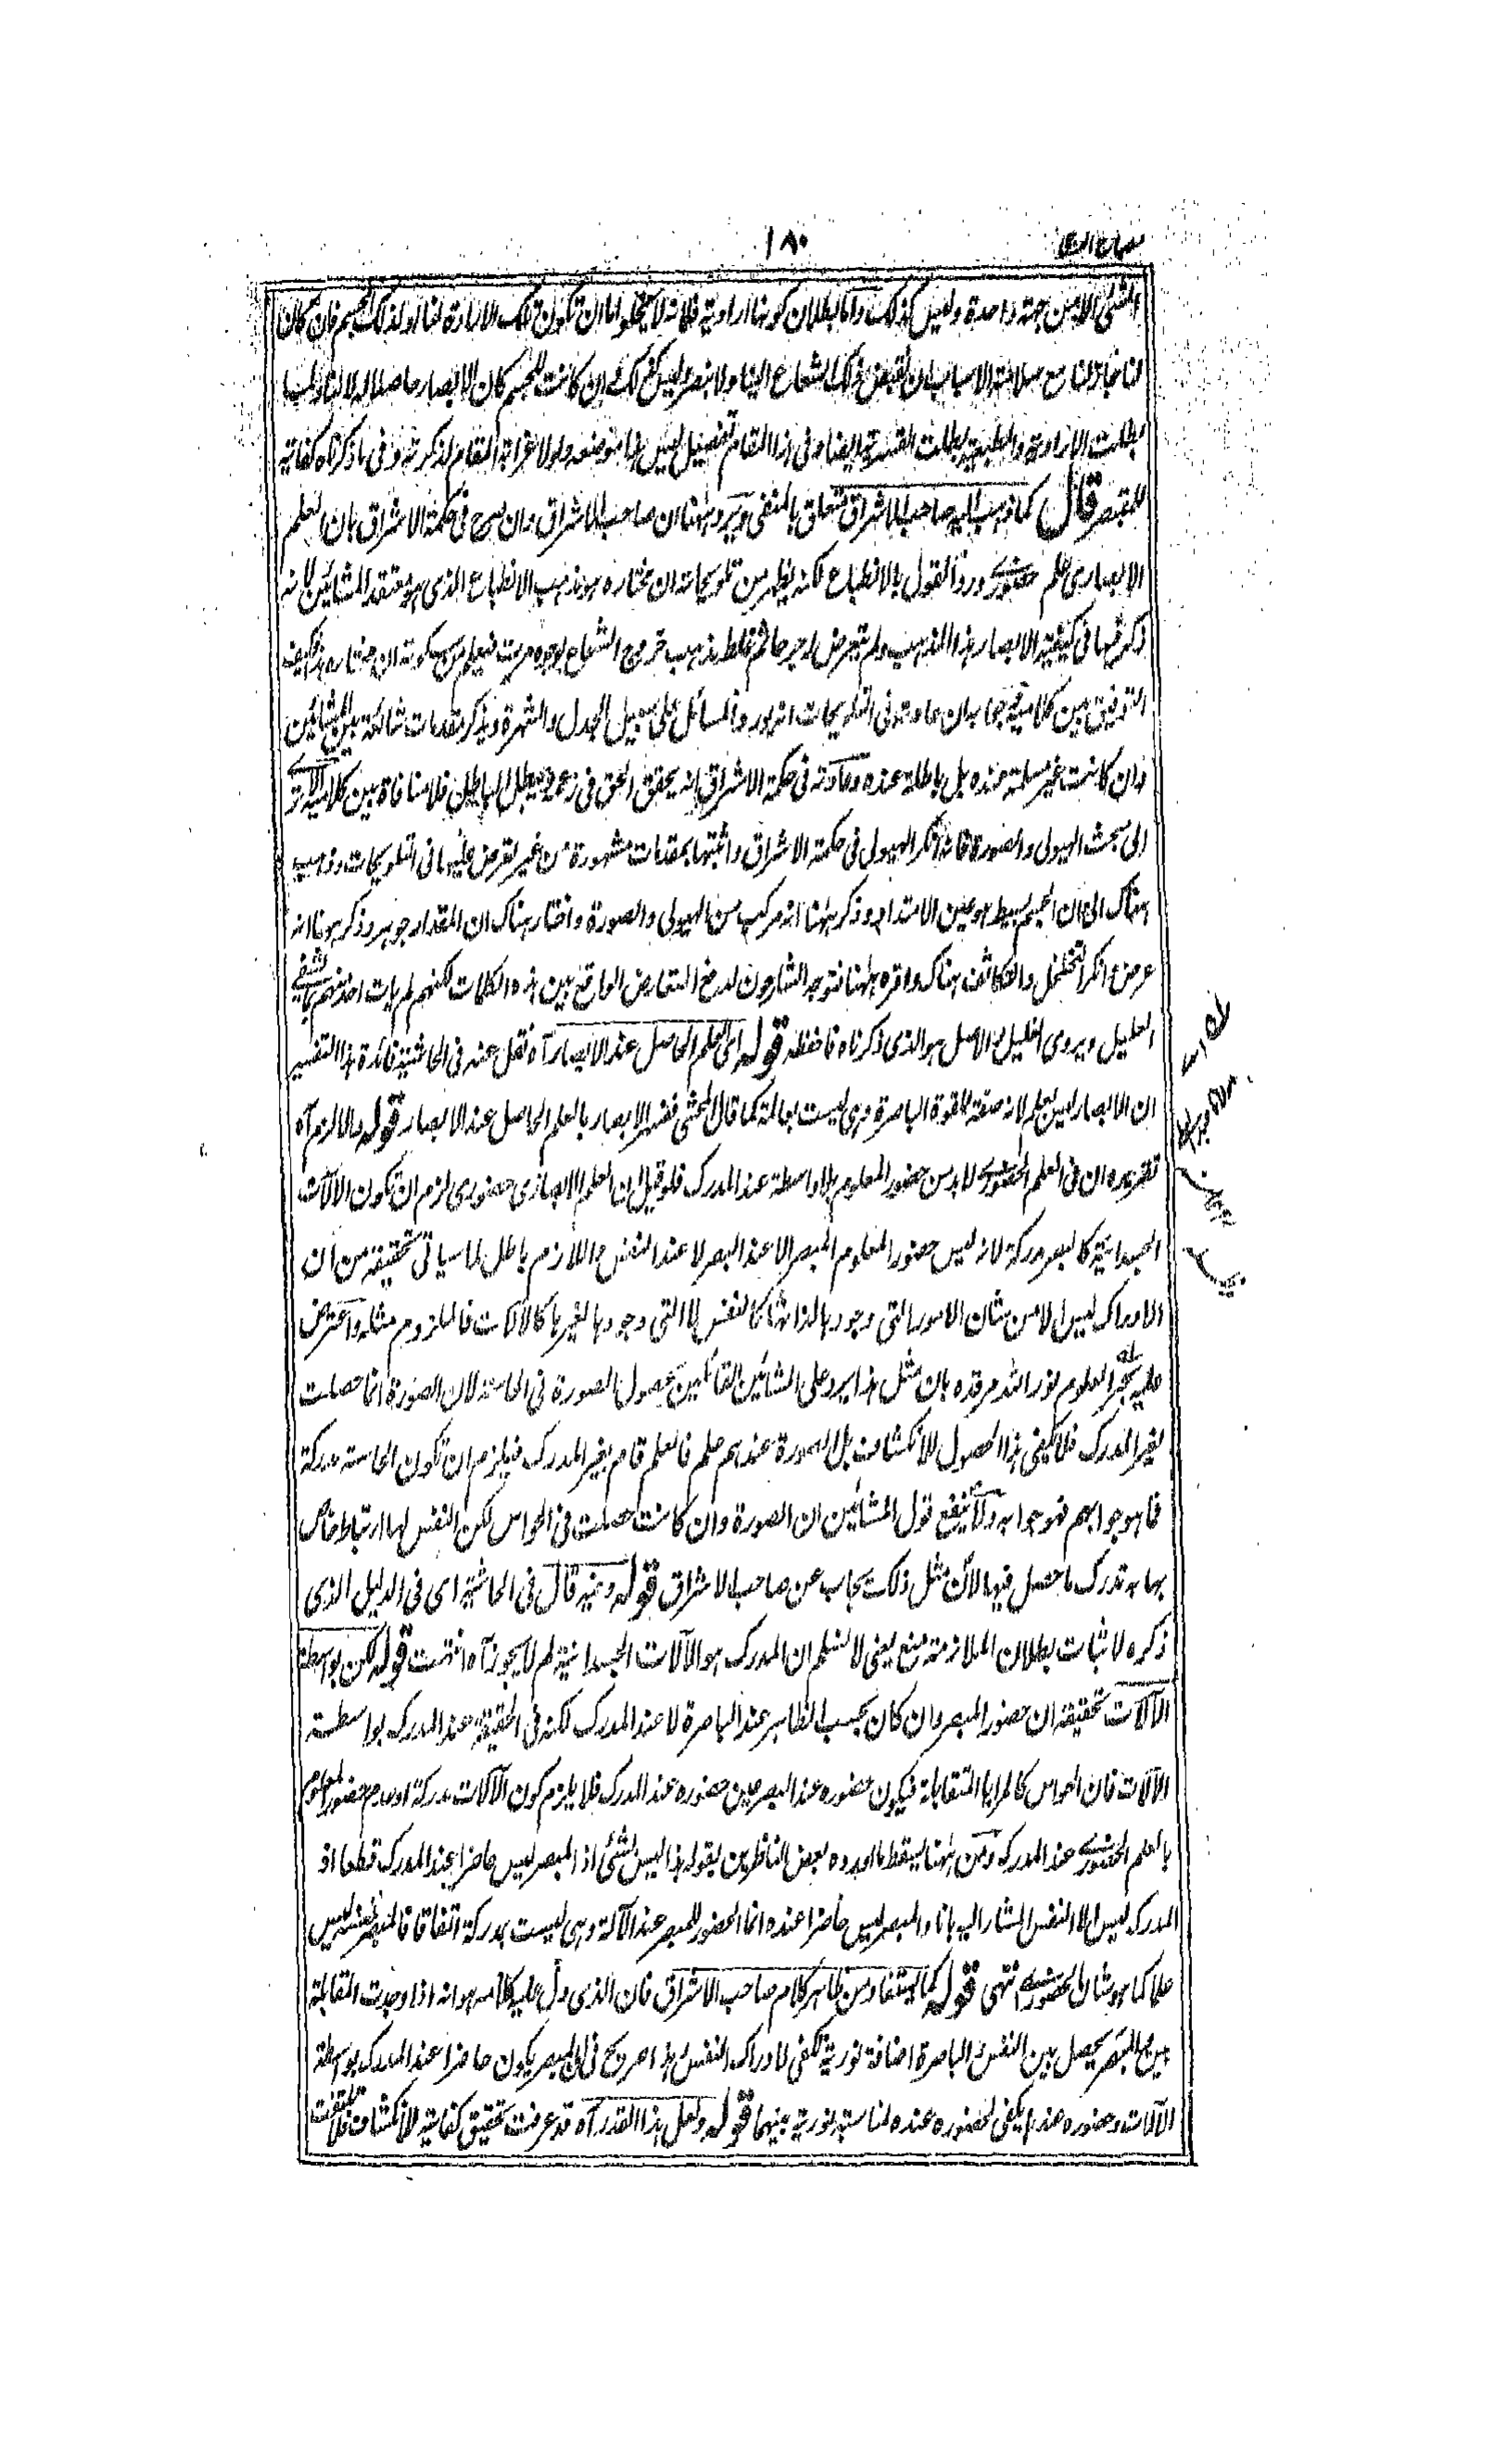 ١٨٠
الشئ الا من جهة واحدة وليس كذلك واما بطلان كونها ارادية فلانه لا يخلو اما ان تكون تلك الارادة لنا او لذلك الجسم فان كان
لنا جاز لنا مع سلامة الاسباب ان نقبض ذلك الشعاع الينا ولا نبصر وليس كذلك وان كانت للجسم كان الابصار حاصلا له لا لنا ولما
بطلت الارادية والطبيعية بطلت القسرية ايضا وفى هذا المقام تفصيل ليس هذا موضعه ولولا غرابة المقام لذكرته وفى ما ذكرناه كفاية
للمتبصر قال كما ذهب اليه صاحب الاشراق متعلق بالمنفى ويرد ههنا ان صاحب الاشراق وان صرح فى حكمة الاشراق بان العلم
الابصارى علم حضورى ورد القول بالانطباع لكنه يظهر من تلويحاته ان مختاره هو مذهب الانطباع الذى هو معتقد المشائين لانه
ذكر فيها فى كيفية الابصار هذا المذهب ولم يتعرض لجرحه ثم غلط مذهب خروج الشعاع بوجوه مرت فيعلم من سكوته ان مختاره هذا فكيف
التوفيق بين كلاميه جوابه ان عادته فى التلويحات انه يورد المسائل على سبيل الجدل والشهرة ويذكر مقدمات شائعة بين المشائين
وان كانت غير مسلمة عنده بل باطلة عنده وعادته فى حكمة الاشراق انه يحقق الحق فى زعمه ويبطل الباطل فلا منافاة بين كلاميه الا ترى
الى مبحث الهيولى والصورة فانه انكر الهيولى فى حكمة الاشراق واثبتها بمقدمات مشهورة من غير تعرض عليها فى التلويحات وذهب
هناك الى ان الجسم بسيط هو عين الامتداد وذكر ههنا انه مركب من الهيولى والصورة واختار هناك ان المقدار جوهر وذكر ههنا انه
عرض وانكر التخلخل والتكاثف هناك واقره ههنا فتوجه الشارحون لدفع التعارض الواقع بين هذه الكلمات لكنهم لم يات احد منهم بما يشفى
العليل ويروى الغليل والاصل هو الذى ذكرناه فاحفظه قوله اى العلم الحاصل عند الابصار آه نقل عنه فى الحاشية فائدة هذا التفسير
ان الابصار ليس بعلم لانه صفة للقوة الباصرة وهى ليست بعالمة كما قال المحشى ففسر الابصار بالعلم الحاصل عند الابصار قوله والا لزم آه
تقريره ان فى العلم الحضورى لا بد من حضور المعلوم بلا واسطة عند المدرك فلو قيل ان العلم الابصارى حضورى لزم ان تكون الآلات
الجسدانية كالبصر مدركة لانه ليس حضور المعلوم المبصر الا عند البصر لا عند النفس واللازم باطل لما سياتى تحقيقه من ان
الادراك ليس الا من شان الامور التى وجودها لذاتها كالنفس لا التى وجودها لغيرها كالآلات فالملزوم مثله واعترض
عليه بحر العلوم نور الله مرقده بان مثل هذا يرد على المشائين القائلين بحصول الصورة فى الحاسة لان الصورة انما حصلت
لغير المدرك فلا يكفى هذا الحصول للانكشاف بل الصورة عندهم علم فالعلم قام بغير المدرك فيلزم ان تكون الحاسة مدركة
فما هو جوابهم فهو جوابه ولا ينفع قول المشائين ان الصورة وان كانت حصلت فى الحواس لكن النفس لها ارتباط خاص
بها به تدرك ما حصل فيها لان مثل ذلك يجاب عن صاحب الاشراق قوله وفيه قال فى الحاشية اى فى الدليل الذى
ذكره لاثبات بطلان الملازمة منع يعنى لا نسلم ان المدرك هو الآلات الجسدانية لم لا يجوز آه انتهت قوله لكن بواسطة
الآلات تحقيقه ان حضور المبصر وان كان بحسب الظاهر عند الباصرة لا عند المدرك لكنه فى الحقيقة عند المدرك بواسطة
الآلات فان الحواس كالمرايا المتقابلة فيكون حضوره عند البصر عين حضوره عند المدرك فلا يلزم كون الآلات مدركة او عدم حضور المعلوم
بالعلم الحضورى عند المدرك ومن ههنا يسقط ما اورده بعض الناظرين بقوله هذا ليس بشئ اذ المبصر ليس حاضرا عند المدرك قطعا اذ
المدرك ليس الا النفس المشار اليه بانا والمبصر ليس حاضرا عنده انما الحضور للمبصر عند الآلة وهى ليست بمدركة اتفاقا فالمبصر بنفسه ليس
علما كما هو شان الحضورى انتهى قوله كما يستفاد من ظاهر كلام صاحب الاشراق فان الذى دل عليه كلامه هو انه اذا وجدت المقابلة
بين المبصر يحصل بين النفس والباصرة اضافة نورية تكفى لادراك النفس وهذا صريح فى ان المبصر يكون حاضرا عند المدرك بواسطة
الآلات وحضوره عندها يكفى لحضوره عنده لمناسبة نورية بينهما قوله ولعل هذا القدر آه قد عرفت تحقيق كفاية الانكشاف فلا تلتفت